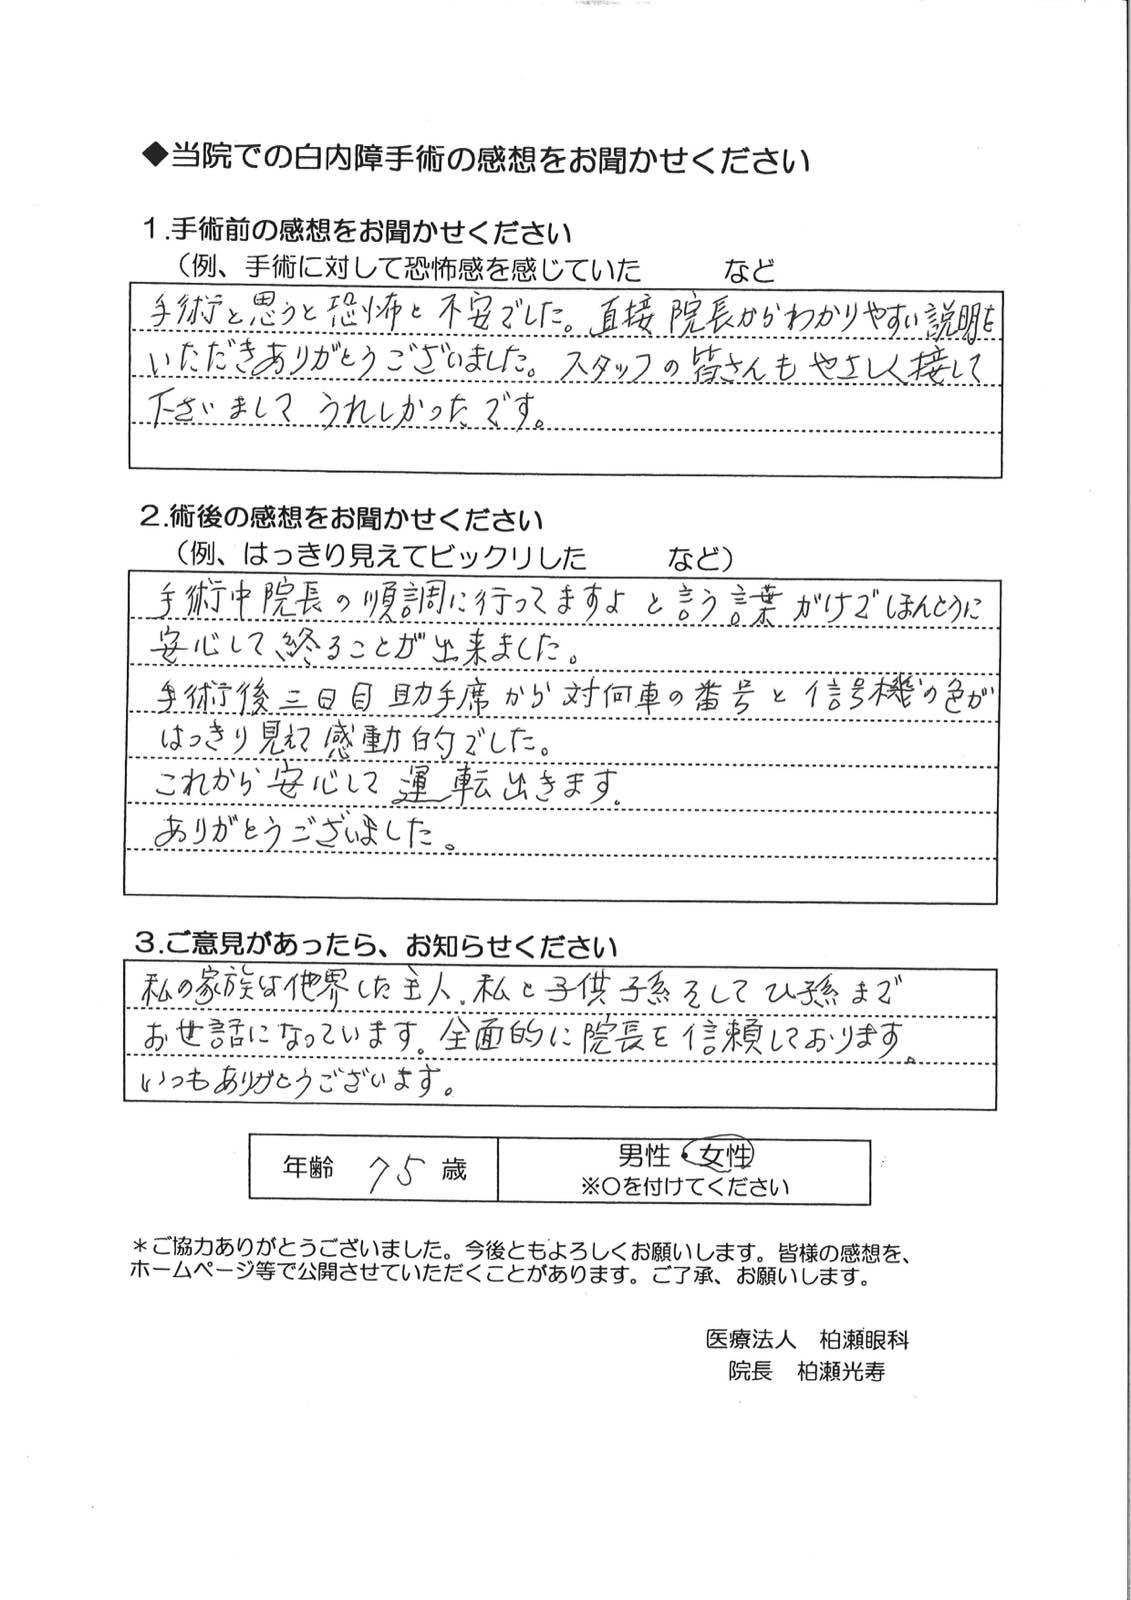 ◆当院での白内障手術の感想をお聞かせください
1.手術前の感想をお聞かせください
(例、手術に対して恐怖感を感じていた　　　など
手術と思うと恐怖と不安でした。直接院長からわかりやすい説明を
いただきありがとうございました。スタッフの皆さんもやさしく接して
下さいましてうれしかったです。
2.術後の感想をお聞かせください
(例、はっきり見えてビックリした　　　など)
手術中院長の順調に行ってますよと言う言葉がけでほんとうに
安心して終ることが出来ました。
手術後三日目助手席から対向車の番号と信号機の色が
はっきり見えて感動的でした。
これから安心して運転出きます。
ありがとうございました。
3.ご意見があったら、お知らせください
私の家族は他界した主人、私と子供子孫そしてひ孫まで
お世話になっています。全面的に院長を信頼しております。
いつもありがとうございます。
年齢　75　歳
男性・女性
※○を付けてください
＊ご協力ありがとうございました。今後ともよろしくお願いします。皆様の感想を、
ホームページ等で公開させていただくことがあります。ご了承、お願いします。
医療法人　柏瀬眼科
院長　柏瀬光寿